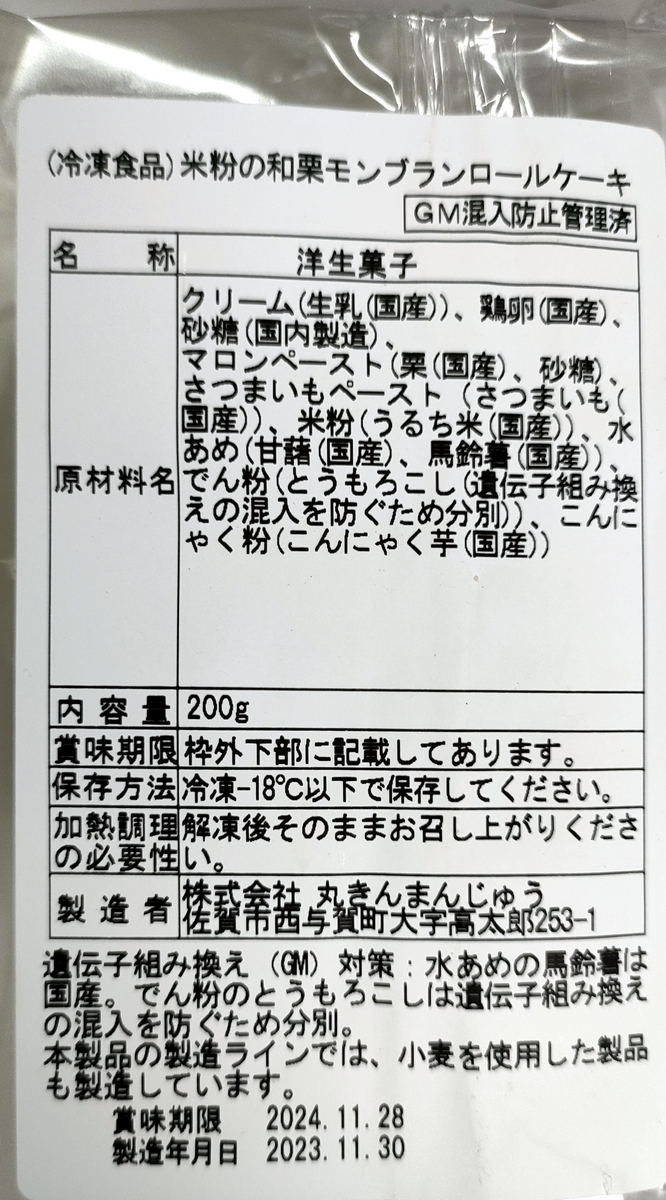 (冷凍食品)米粉の和栗モンブランロールケーキ
GM混入防止管理済
名称 洋生菓子
原材料名
クリーム(生乳(国産))、鶏卵(国産)、
砂糖(国内製造)、
マロンペースト(栗(国産)、砂糖)、
さつまいもペースト(さつまいも(
国産))、米粉(うるち米(国産))、水
あめ(甘藷(国産)、馬鈴薯(国産))、
でん粉(とうもろこし(遺伝子組み換
えの混入を防ぐため分別))、こんに
ゃく粉(こんにゃく芋(国産))
内容量 200g
賞味期限 枠外下部に記載してあります。
保存方法 冷凍-18℃以下で保存してください。
加熱調理 解凍後そのままお召し上がりくださ
の必要性 い。
製造者
株式会社 丸きんまんじゅう
佐賀市西与賀町大字高太郎253-1
遺伝子組み換え(GM)対策:水あめの馬鈴薯は
国産。でん粉のとうもろこしは遺伝子組み換え
の混入を防ぐため分別。
本製品の製造ラインでは、小麦を使用した製品
も製造しています。
賞味期限 2024.11.28
製造年月日 2023.11.30